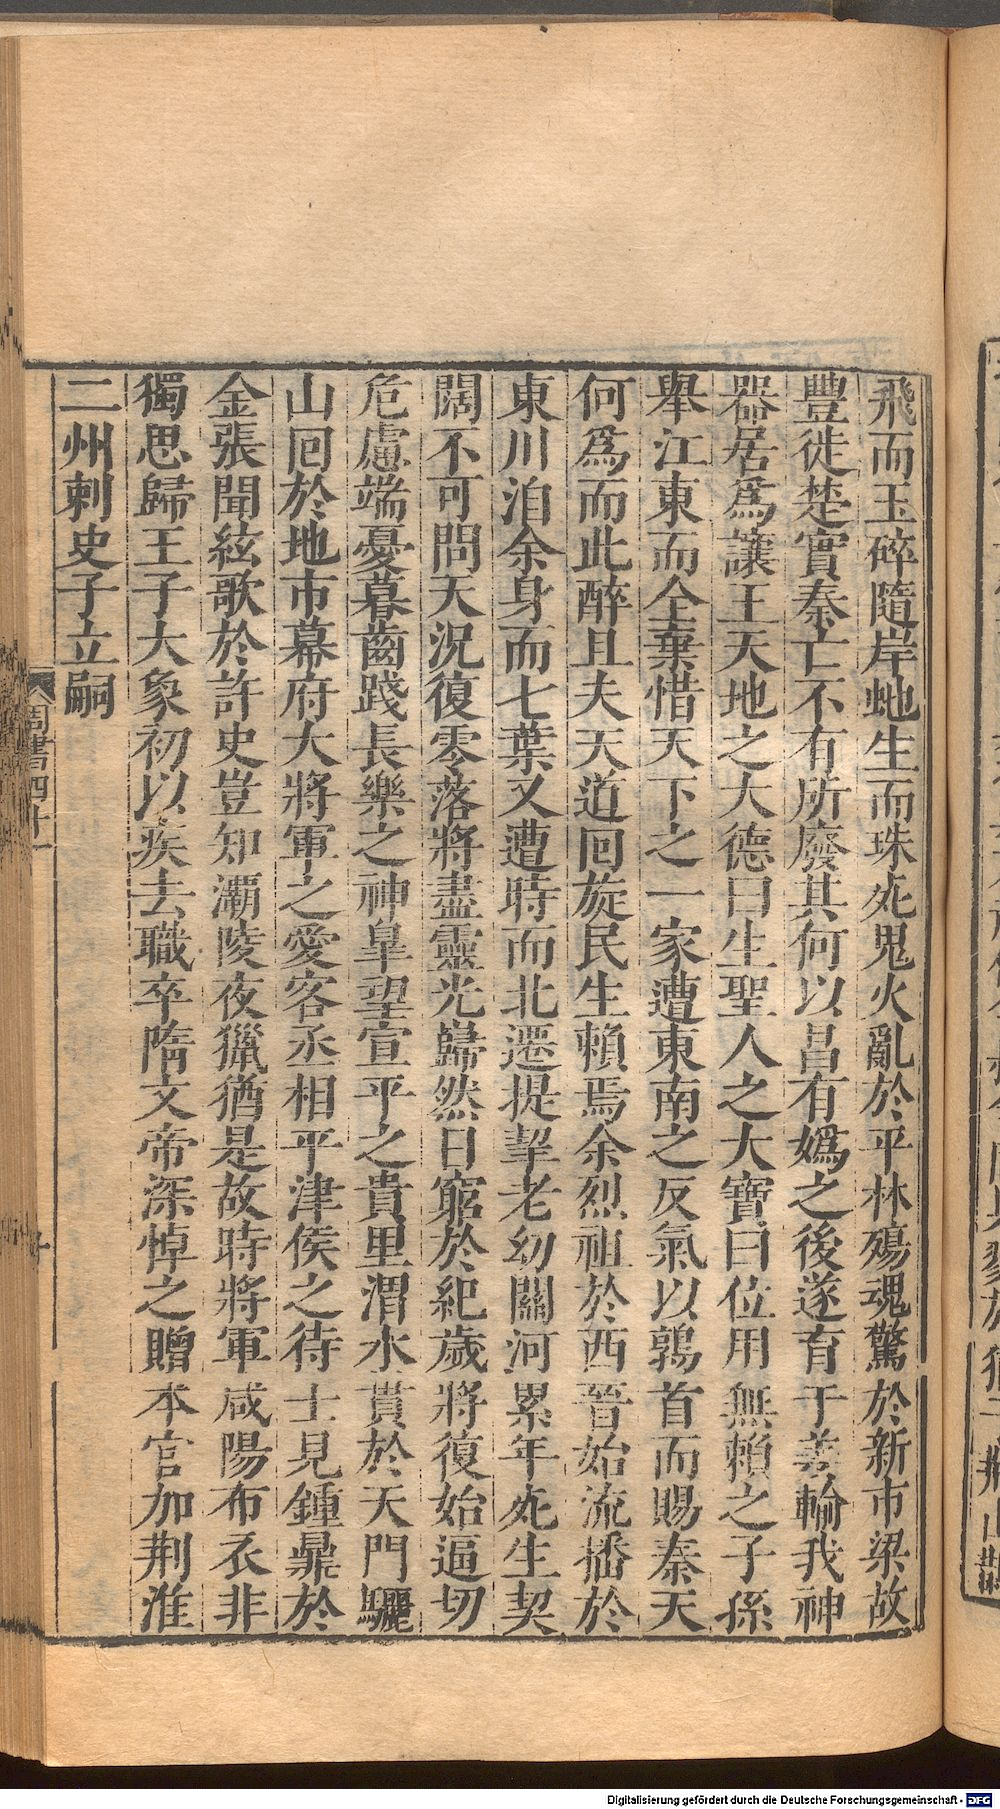 飛而玉碎隨岸虵生而珠死鬼火亂於平林殤魂驚於新市梁故
豐徙楚實秦亡不有所廢其何以昌有嬀之後遂育于姜輸我神
器居爲讓王天地之大德曰生聖人之大寶曰位用無賴之子孫
舉江東而全棄惜天下之一家遭東南之反氣以鶉首而賜秦天
何爲而此醉且夫天道回旋民生賴焉余烈祖於西晉始流播於
東川洎余身而七葉又遭時而北遷提挈老幼關河累年死生契
闊不可問天況復零落將盡靈光巋然日窮於紀歲將復始逼切
危慮端憂暮齒踐長樂之神臯望宣平之貴里渭水貫於天門驪
山回於地市幕府大將軍之愛客丞相平津侯之待士見鍾鼎於
金張聞絃歌於許史豈知灞陵夜獵猶是故時將軍咸陽布衣非
獨思歸王子大象初以疾去職卒隋文帝深悼之贈本官加荆淮
二州刺史子立嗣
周書四十一
Digitalisierung gefördert durch die Deutsche Forschungsgemeinschaft - DFG